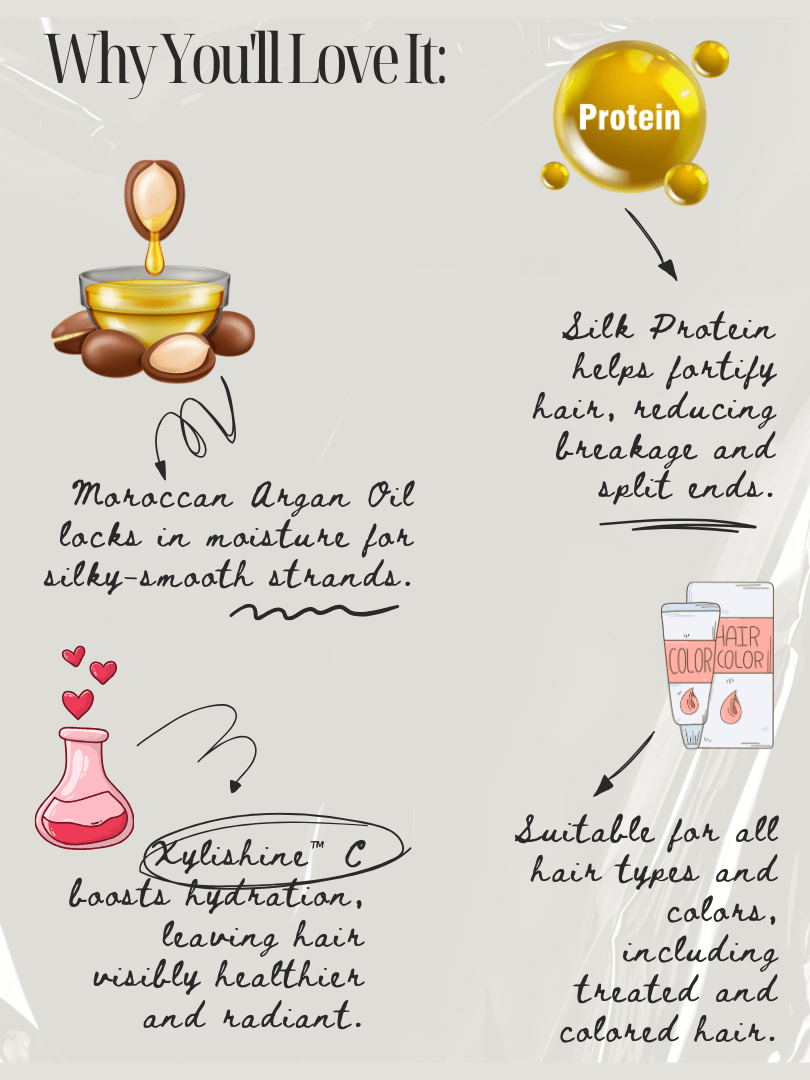 Why You'll Love It:
Protein
Silk Protein
helps fortify
hair, reducing
breakage and
split ends.
Moroccan Argan Oil
locks in moisture for
silky-smooth strands.
HAIR
COLOR
COLOR
Xylishine™ C
boosts hydration,
leaving hair
visibly healthier
and radiant.
Suitable for all
hair types and
colors,
including
treated and
colored hair.